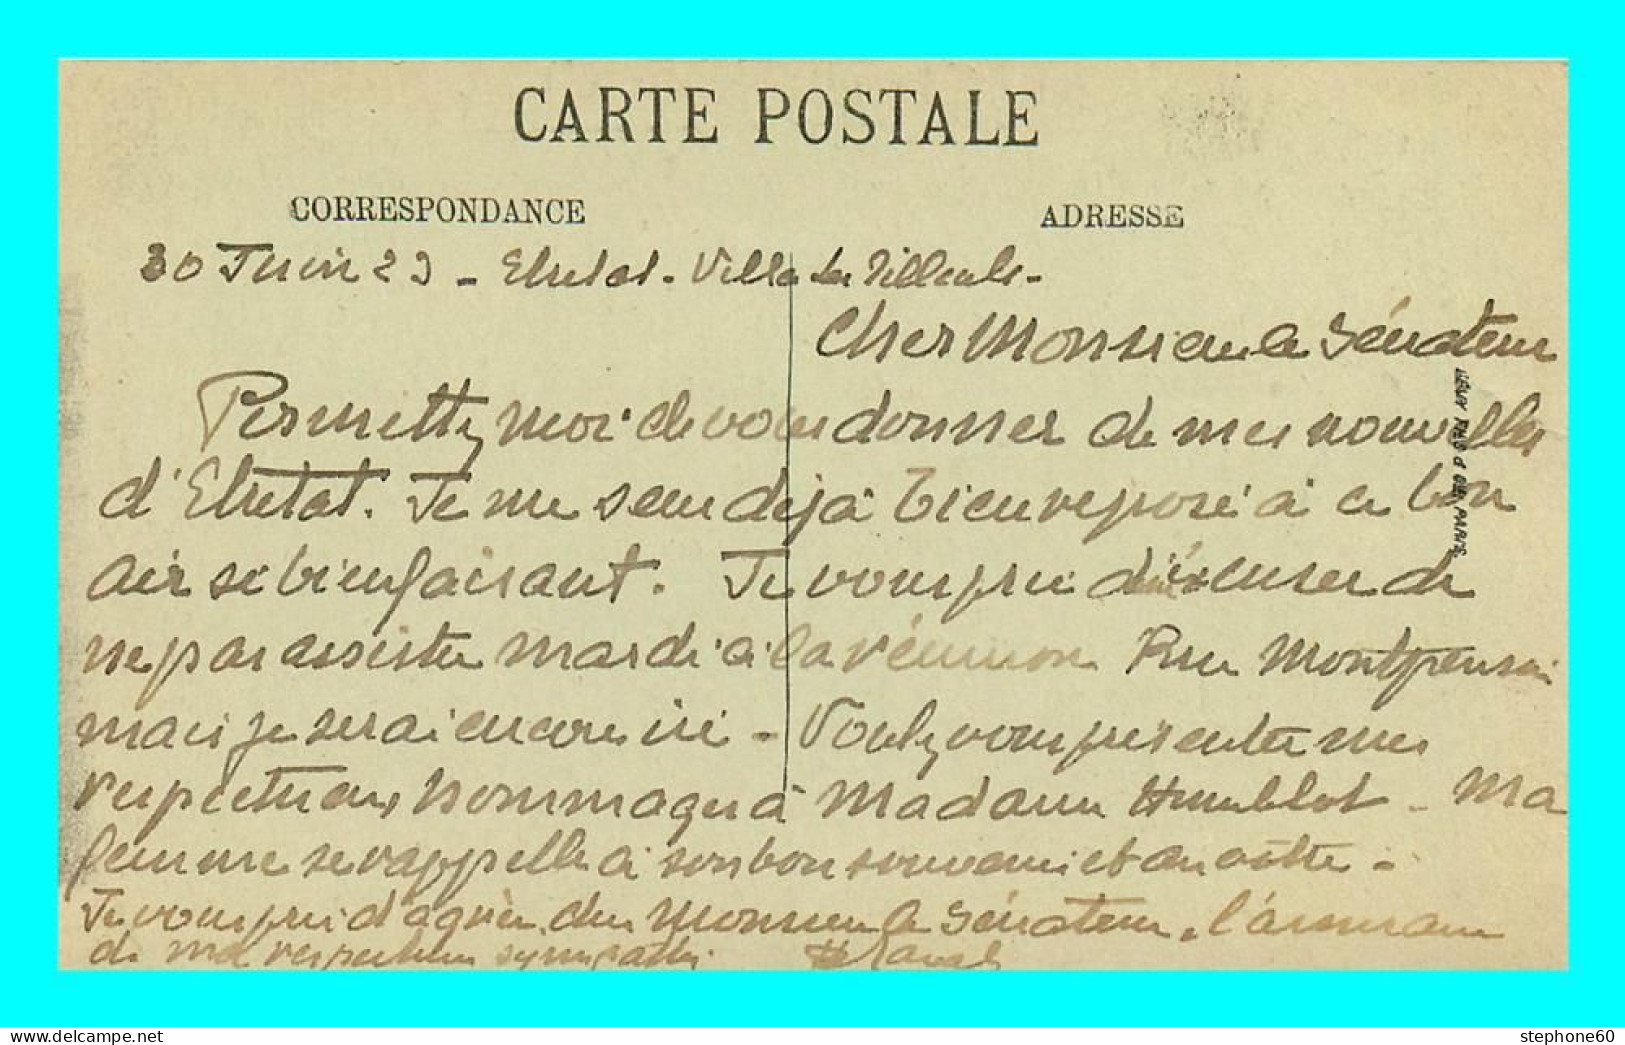 CARTE POSTALE
CORRESPONDANCE
ADRESSE
30 Juin 23 - Etretat. Villa les Tilleuls -
Cher Monsieur le Sénateur
Permettez moi de vous donner de mes nouvelles
d'Etretat. Je me sens déjà bien reposé à ce bon
air si bienfaisant. Je vous prie d'excuser de
ne pas assister mardi à la réunion Rue Montpensier
mais je serai encore ici - Voulez vous présenter mes
respectueux hommages à Madame Humblot - Ma
femme se rappelle à son bon souvenir et au vôtre -
Je vous prie d'agréer, cher Monsieur le Sénateur, l'assurance
de ma respectueuse sympathie.
PARIS
stephone60